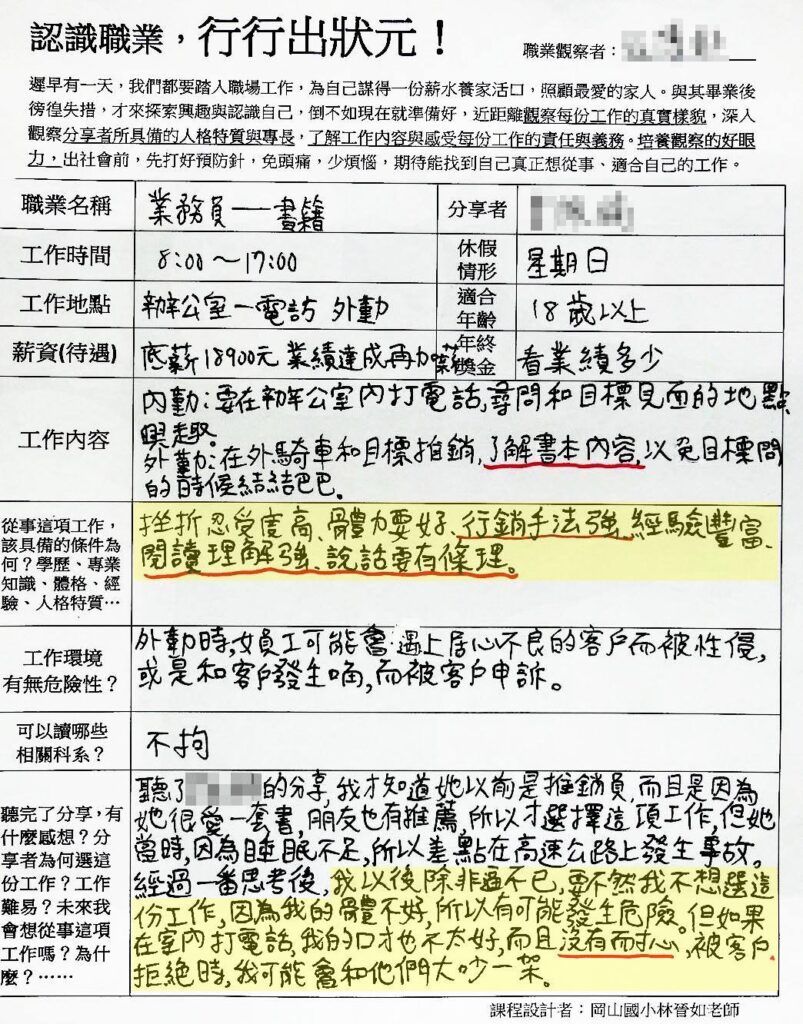 認識職業，行行出狀元！
職業觀察者：
遲早有一天，我們都要踏入職場工作，為自己謀得一份薪水養家活口，照顧最愛的家人。與其畢業後
徬徨失措，才來探索興趣與認識自己，倒不如現在就準備好，近距離觀察每份工作的真實樣貌，深入
觀察分享者所具備的人格特質與專長，了解工作內容與感受每份工作的責任與義務。培養觀察的好眼
力，出社會前，先打好預防針，免頭痛，少煩惱，期待能找到自己真正想從事、適合自己的工作。
職業名稱
業務員——書籍
分享者
工作時間
8:00～17:00
休假
情形
星期日
工作地點
辦公室－電訪 外勤
適合
年齡
18歲以上
薪資(待遇)
底薪18900元 業績達成再加薪
年終
獎金
看業績多少
工作內容
內勤：要在辦公室內打電話，尋問和目標見面的地點、
興趣。
外勤：在外騎車和目標推銷，了解書本內容，以免目標問
的時候結結巴巴。
從事這項工作，
該具備的條件為
何？學歷、專業
知識、體格、經
驗、人格特質…
挫折忍受度高、體力要好、行銷手法強、經驗豐富、
閱讀理解強、說話要有條理。
工作環境
有無危險性？
外勤時，女員工可能會遇上居心不良的客戶而被性侵，
或是和客戶發生口角，而被客戶申訴。
可以讀哪些
相關科系？
不拘
聽完了分享，有
什麼感想？分
享者為何選這
份工作？工作
難易？未來我
會想從事這項
工作嗎？為什
麼？……
聽了的分享，我才知道她以前是推銷員，而且是因為
她很愛一套書，朋友也有推薦，所以才選擇這項工作，但她
當時，因為睡眠不足，所以差點在高速公路上發生事故。
經過一番思考後，我以後除非逼不已，要不然我不想選這
份工作，因為我的體不好，所以有可能發生危險。但如果
在室內打電話，我的口才也不太好，而且沒有耐心，被客戶
拒絕時，我可能會和他們大吵一架。
課程設計者：岡山國小林晉如老師